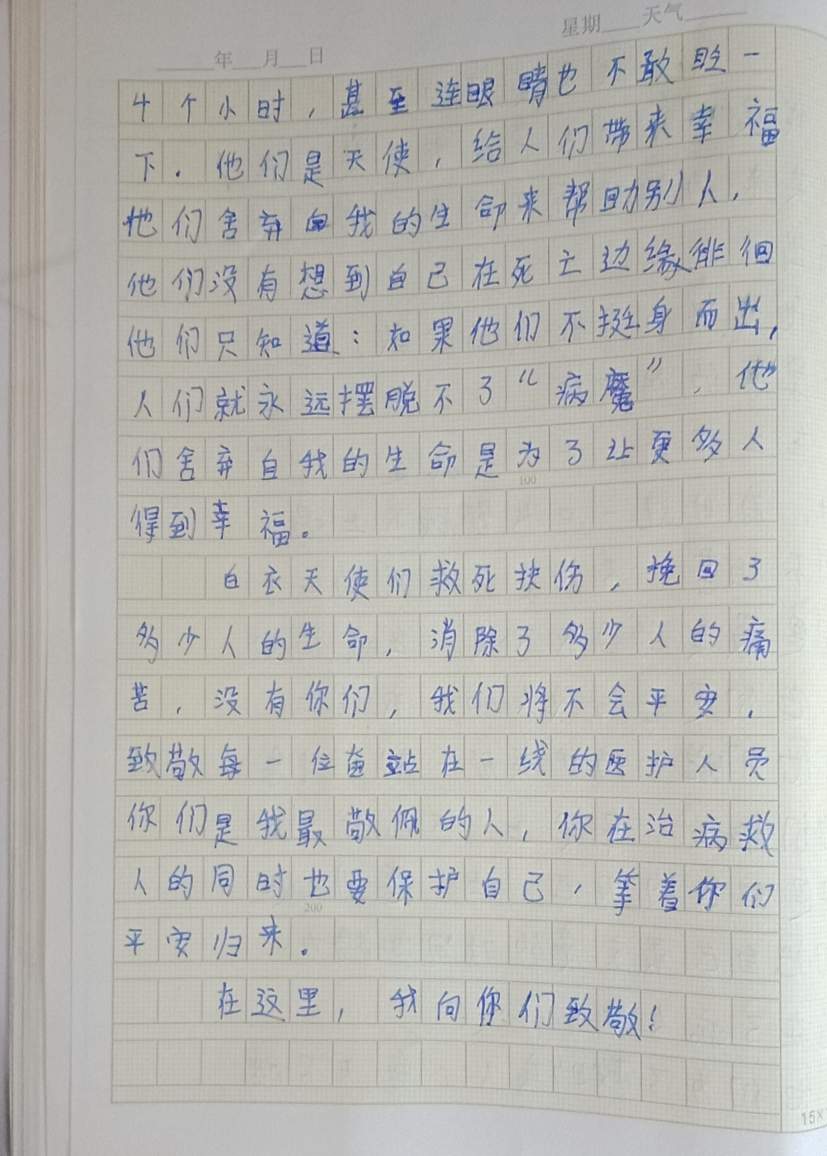 星期 天气
年 月 日
4个小时，甚至连眼睛也不敢眨一
下．他们是天使，给人们带来幸福
他们舍弃自我的生命来帮助别人，
他们没有想到自己在死亡边缘徘徊
他们只知道：如果他们不挺身而出，
人们就永远摆脱不了“病魔”，他
们舍弃自我的生命是为了让更多人
100
得到幸福。
白衣天使们救死扶伤，挽回了
多少人的生命，消除了多少人的痛
苦，没有你们，我们将不会平安，
致敬每一位奋站在一线的医护人员
你们是我最敬佩的人，你在治病救
人的同时也要保护自己，等着你们
200
平安归来。
在这里，我向你们致敬！
15×